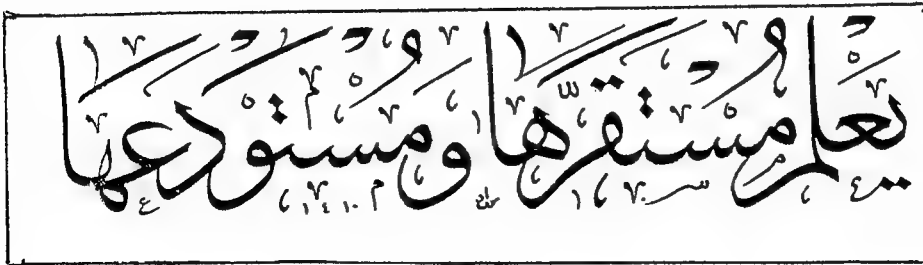 يَعْلَمُ مُسْتَقَرَّهَا وَمُسْتَوْدَعَهَا